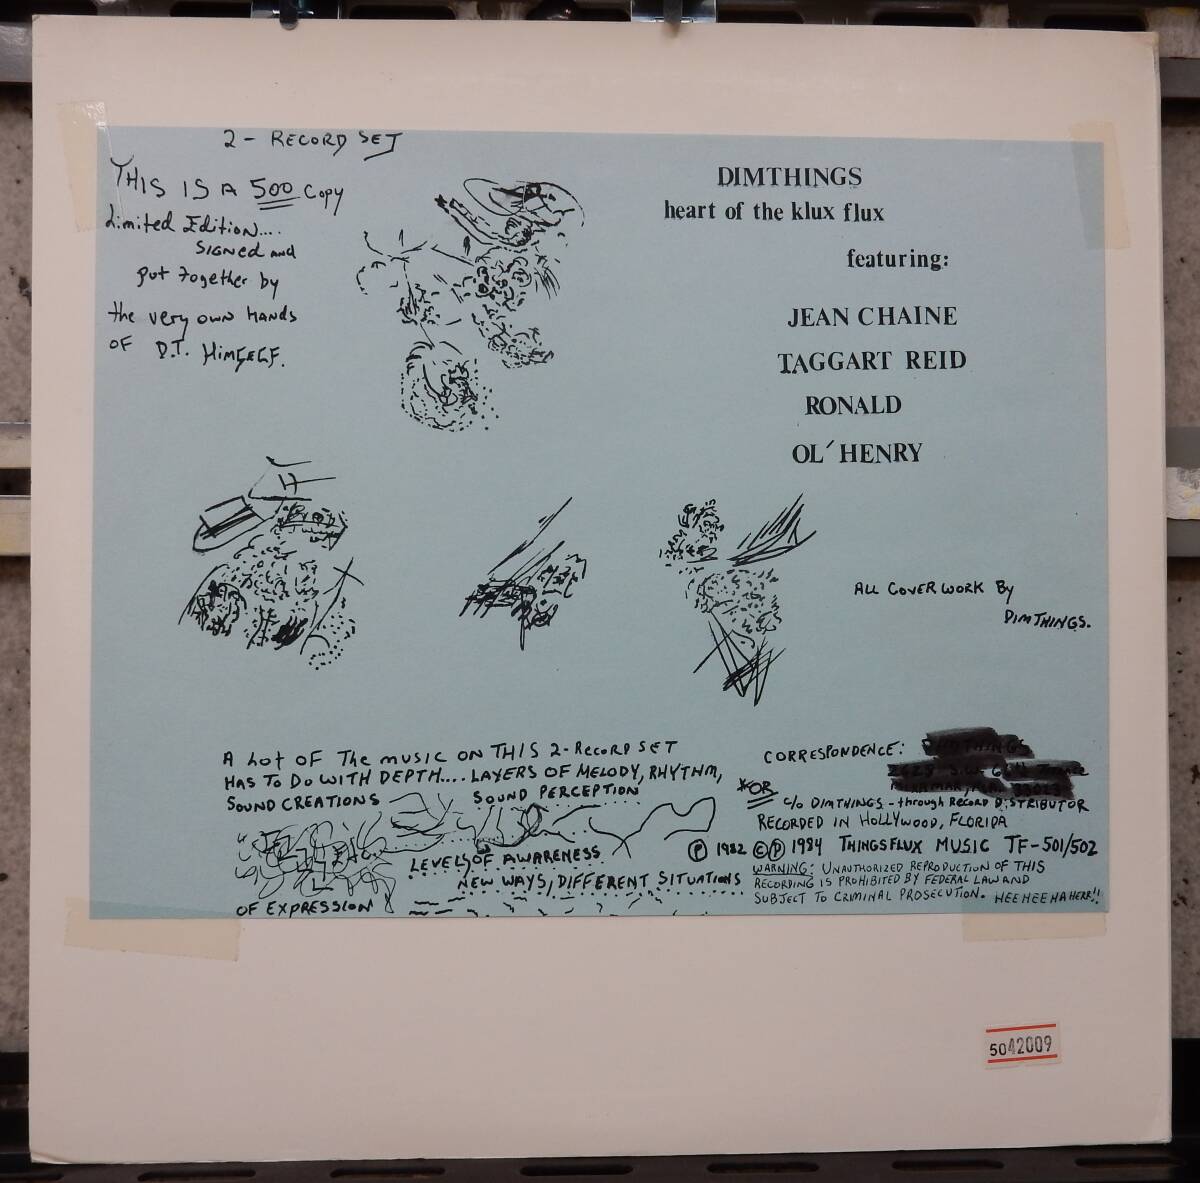 2 - RECORD SET
THIS IS A 500 Copy
Limited Edition....
SIGNED and
put together by
the very own HANDS
OF D.T. HIMSELF.
DIMTHINGS
heart of the klux flux
featuring:
JEAN CHAINE
TAGGART REID
RONALD
OL' HENRY
ALL COVER WORK BY
DIMTHINGS.
A LOT OF THE MUSIC ON THIS 2-RECORD SET
HAS TO DO WITH DEPTH.... LAYERS OF MELODY, RHYTHM,
SOUND CREATIONS SOUND PERCEPTION
LEVELS OF AWARENESS
NEW WAYS, DIFFERENT SITUATIONS
OF EXPRESSION
CORRESPONDENCE:
*OR
c/o DIMTHINGS - through RECORD DISTRIBUTOR
RECORDED IN HOLLYWOOD, FLORIDA
Ⓟ 1982 ©Ⓟ 1984 THINGSFLUX MUSIC TF-501/502
WARNING: UNAUTHORIZED REPRODUCTION OF THIS
RECORDING IS PROHIBITED BY FEDERAL LAW AND
SUBJECT TO CRIMINAL PROSECUTION. HEE HEE HA HERR!!
5042009